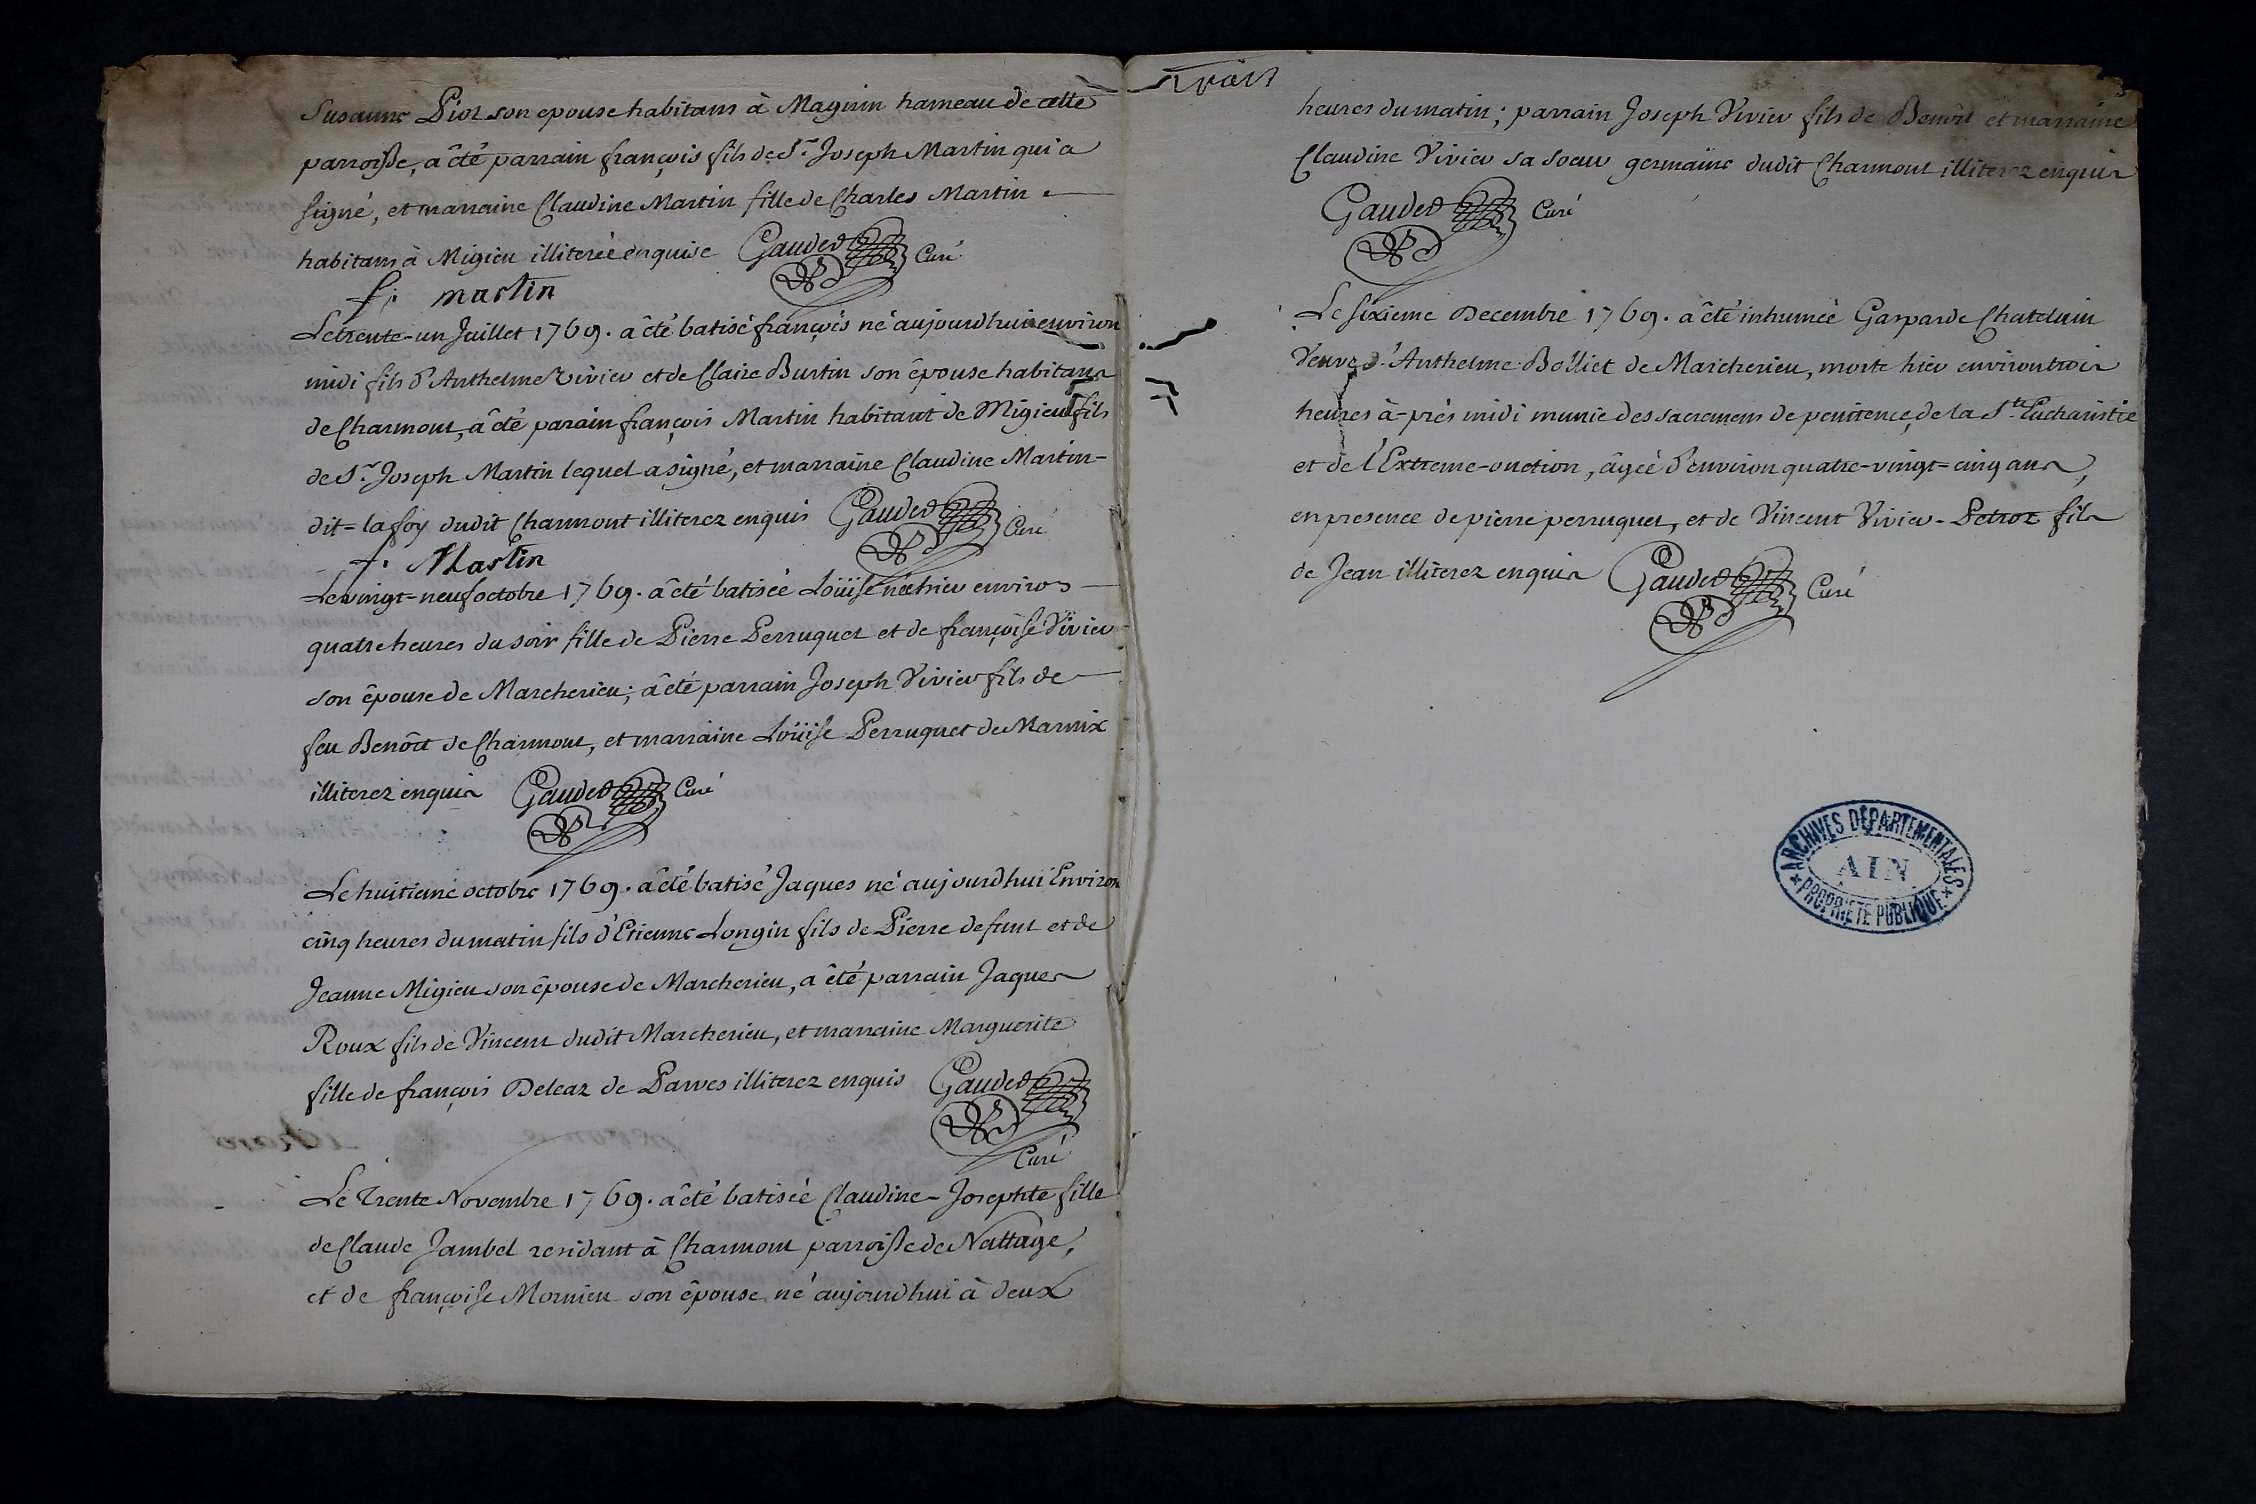 Susanne Piot son epouse habitans à Magnin hameau de cette
parroisse, a êté parrain françois fils de Sr. Joseph Martin qui a
signé, et marraine Claudine Martin fille de Charles Martin
habitans à Migieu illiterée enquise Gauded Curé
f. martin
Le trente-un Juillet 1769. a êté batisé françois né aujourdhui environ
midi fils d'Anthelme Vivier et de Claire Burtin son êpouse habitans
de Charmont, a êté parain françois Martin habitant de Migieu fils
de Sr. Joseph Martin lequel a signé, et marraine Claudine Martin-
dit=lafoy dudit Charmont illiterez enquis Gauded Curé
f. Martin
Le vingt-neuf octobre 1769. a êté batisée Loüise née hier environ
quatre heures du soir fille de Pierre Perruquet et de françoise Vivier
son êpouse de Marcherieu; a êté parrain Joseph Vivier fils de
feu Benôit de Charmont, et marraine Loüise Perruquet de Marnix
illiterez enquis Gauded Curé
Le huitieme octobre 1769. a êté batisé Jaques né aujourdhui Environ
cinq heures du matin fils d'Etienne Longin fils de Pierre defunt et de
Jeanne Migieu son êpouse de Marcherieu, a êté parrain Jaques
Roux fils de Vincent dudit Marcherieu, et marraine Marguerite
fille de françois Deleaz de Parves illiterez enquis Gauded
Curé
Le Trente Novembre 1769. a êté batisée Claudine-Josephte fille
de Claude Jambel residant à Charmont parroisse de Nattage,
et de françoise Mornieu son êpouse né aujourdhui à deux
heures du matin; parrain Joseph Vivier fils de Benoit et marraine
Claudine Vivier sa soeur germaine dudit Charmont illiterez enquis
Gauded Curé
Le sixieme Decembre 1769. a êté inhumée Gasparde Chatelain
Veuve d'Anthelme Bolliet de Marcherieu, morte hier environ trois
heures à-près midi munie des sacremens de penitence, de la Ste. Eucharistie
et de l'Extreme-onction, âgée d'environ quatre-vingt=cinq ans,
en presence de pierre perruquet, et de Vincent Vivier-Petroz fils
de Jean illiterez enquis Gauded Curé
ARCHIVES DÉPARTEMENTALES
AIN
PROPRIÉTÉ PUBLIQUE